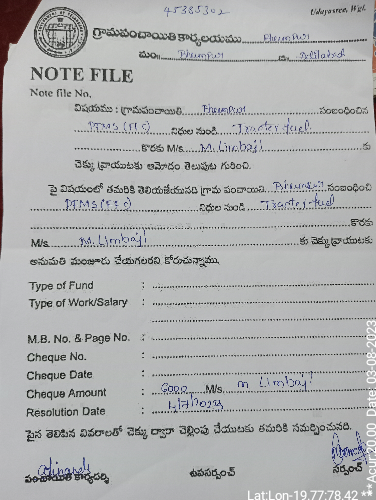 45385302
Udayasree, Wgl.
గ్రామపంచాయితి కార్యాలయము
మం॥ జి॥ Adilabad
NOTE FILE
Note file No.
విషయము : గ్రామపంచాయితి సంబంధించిన
PFMS నిధుల నుండి Tractor fuel
కొరకు M/s M. Limbaji కు
చెక్కు వ్రాయుటకు ఆమోదం తెలుపుట గురించి.
పై విషయంలో తమరికి తెలియజేయునది గ్రామ పంచాయితి సంబంధించి
PFMS నిధుల నుండి Tractor fuel
కొరకు
M/s M. Limbaji కు చెక్కు వ్రాయుటకు
అనుమతి మంజూరు చేయగలరని కోరుచున్నాము.
Type of Fund :
Type of Work/Salary :
M.B. No. & Page No. :
Cheque No. :
Cheque Date :
Cheque Amount : 6000 M/s. M Limbaji
Resolution Date :
పైన తెలిపిన వివరాలతో చెక్కు ద్వారా చెల్లింపు చేయుటకు తమరికి సమర్పించనది.
పంచాయితి కార్యదర్శి ఉపసర్పంచ్ సర్పంచ్
Lat:Lon-19.77:78.42
**Acur:20.00 Date: 03-08-2023